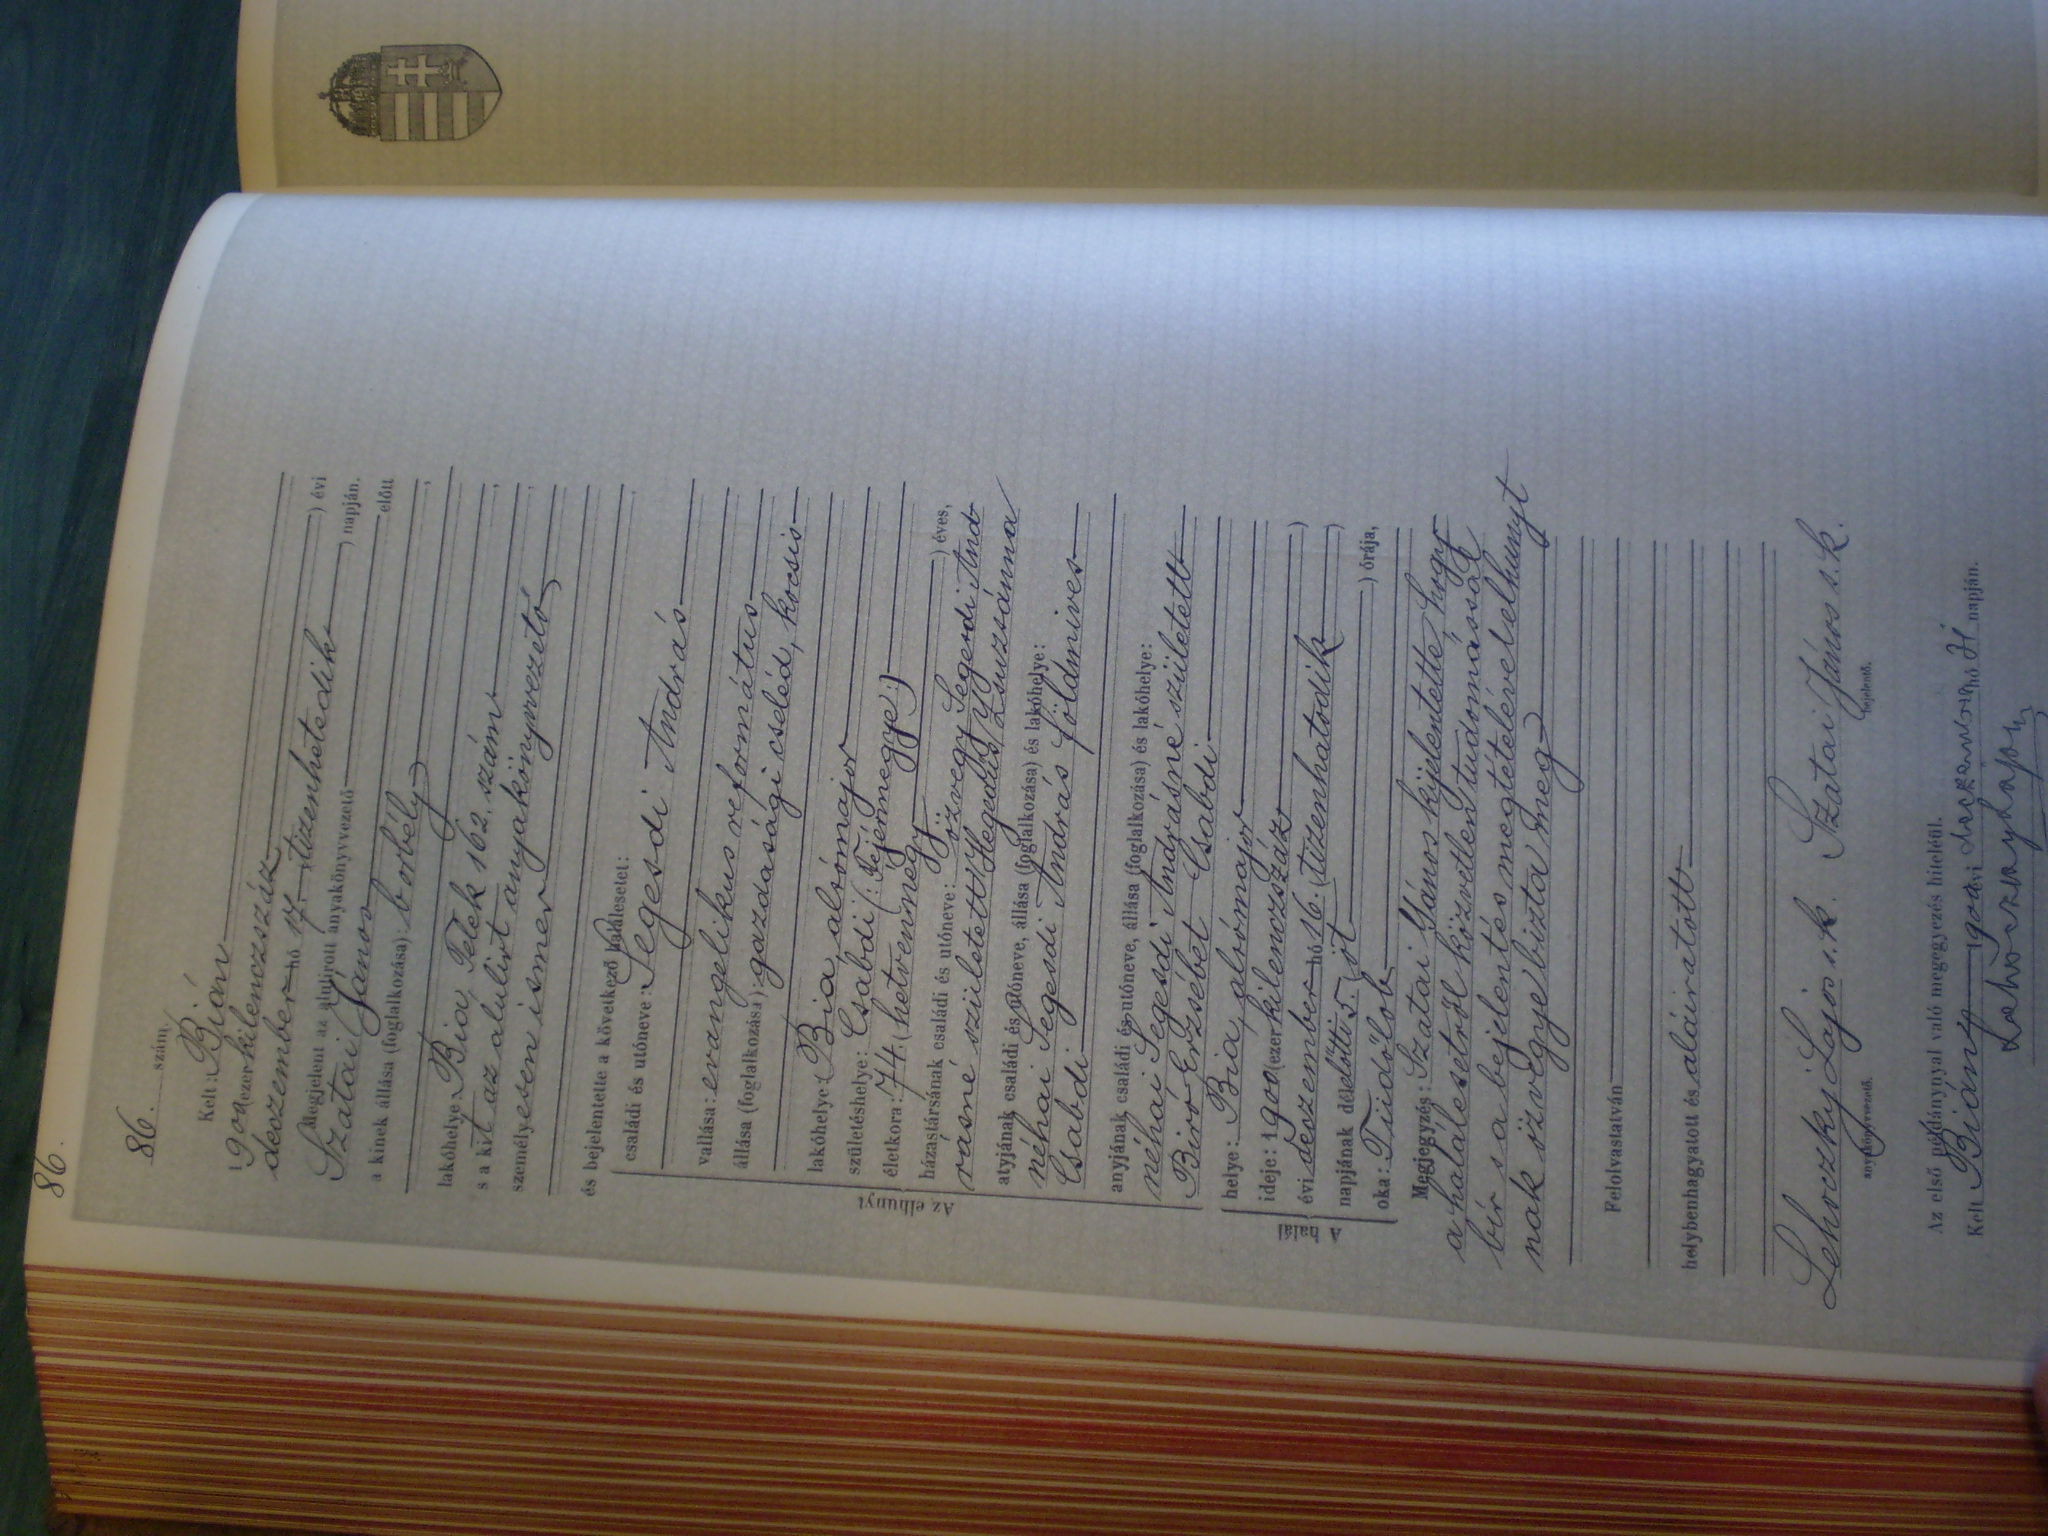 86.
86. szám
Kelt: Bián
1900 (ezerkilenczszáz) évi
deczember hó 17. (tizenhetedik) napján.
Megjelent az alulírott anyakönyvvezető előtt
Szatai János
a kinek állása (foglalkozása): borbély,
lakóhelye: Bia, Telek 162. szám,
s a kit az alulírt anyakönyvvezető
személyesen ismer,
és bejelentette a következő halálesetet:
Az elhunyt
családi és utóneve: Segesdi András
vallása: evangelikus református
állása (foglalkozása): gazdasági cseléd, kocsis
lakóhelye: Bia, alsómajor
születéshelye: Csabdi (: Fejérmegye :)
életkora: 74. (hetvennégy) éves,
házastársának családi és utóneve: özvegy Segesdi And
rásné született Hegedüs Zsuzsánna
atyjának családi és utóneve, állása (foglalkozása) és lakóhelye:
néhai Segesdi András földmives
Csabdi
anyjának családi és utóneve, állása (foglalkozása) és lakóhelye:
néhai Segesdi Andrásné született
Biró Erzsébet Csabdi
A halál
helye: Bia, alsómajor
ideje: 1900 (ezerkilenczszáz)
évi deczember hó 16. (tizenhatodik)
napjának délelőtti 5. (öt) órája,
oka: Tüdőlob
Megjegyzés: Szatai János kijelentette hogy
a halálesetről közvetlen tudomással
bír s a bejelentés megtételével elhunyt
nak özvegye bizta meg
Felolvastatván
helybenhagyatott és aláiratott
Lehoczky Lajos s.k. Szatai János s.k.
anyakönyvvezető. bejelentő.
Az első példánynyal való megegyezés hiteléül.
Kelt Bián 1900 évi deczember hó 31 napján.
Lehoczky Lajos